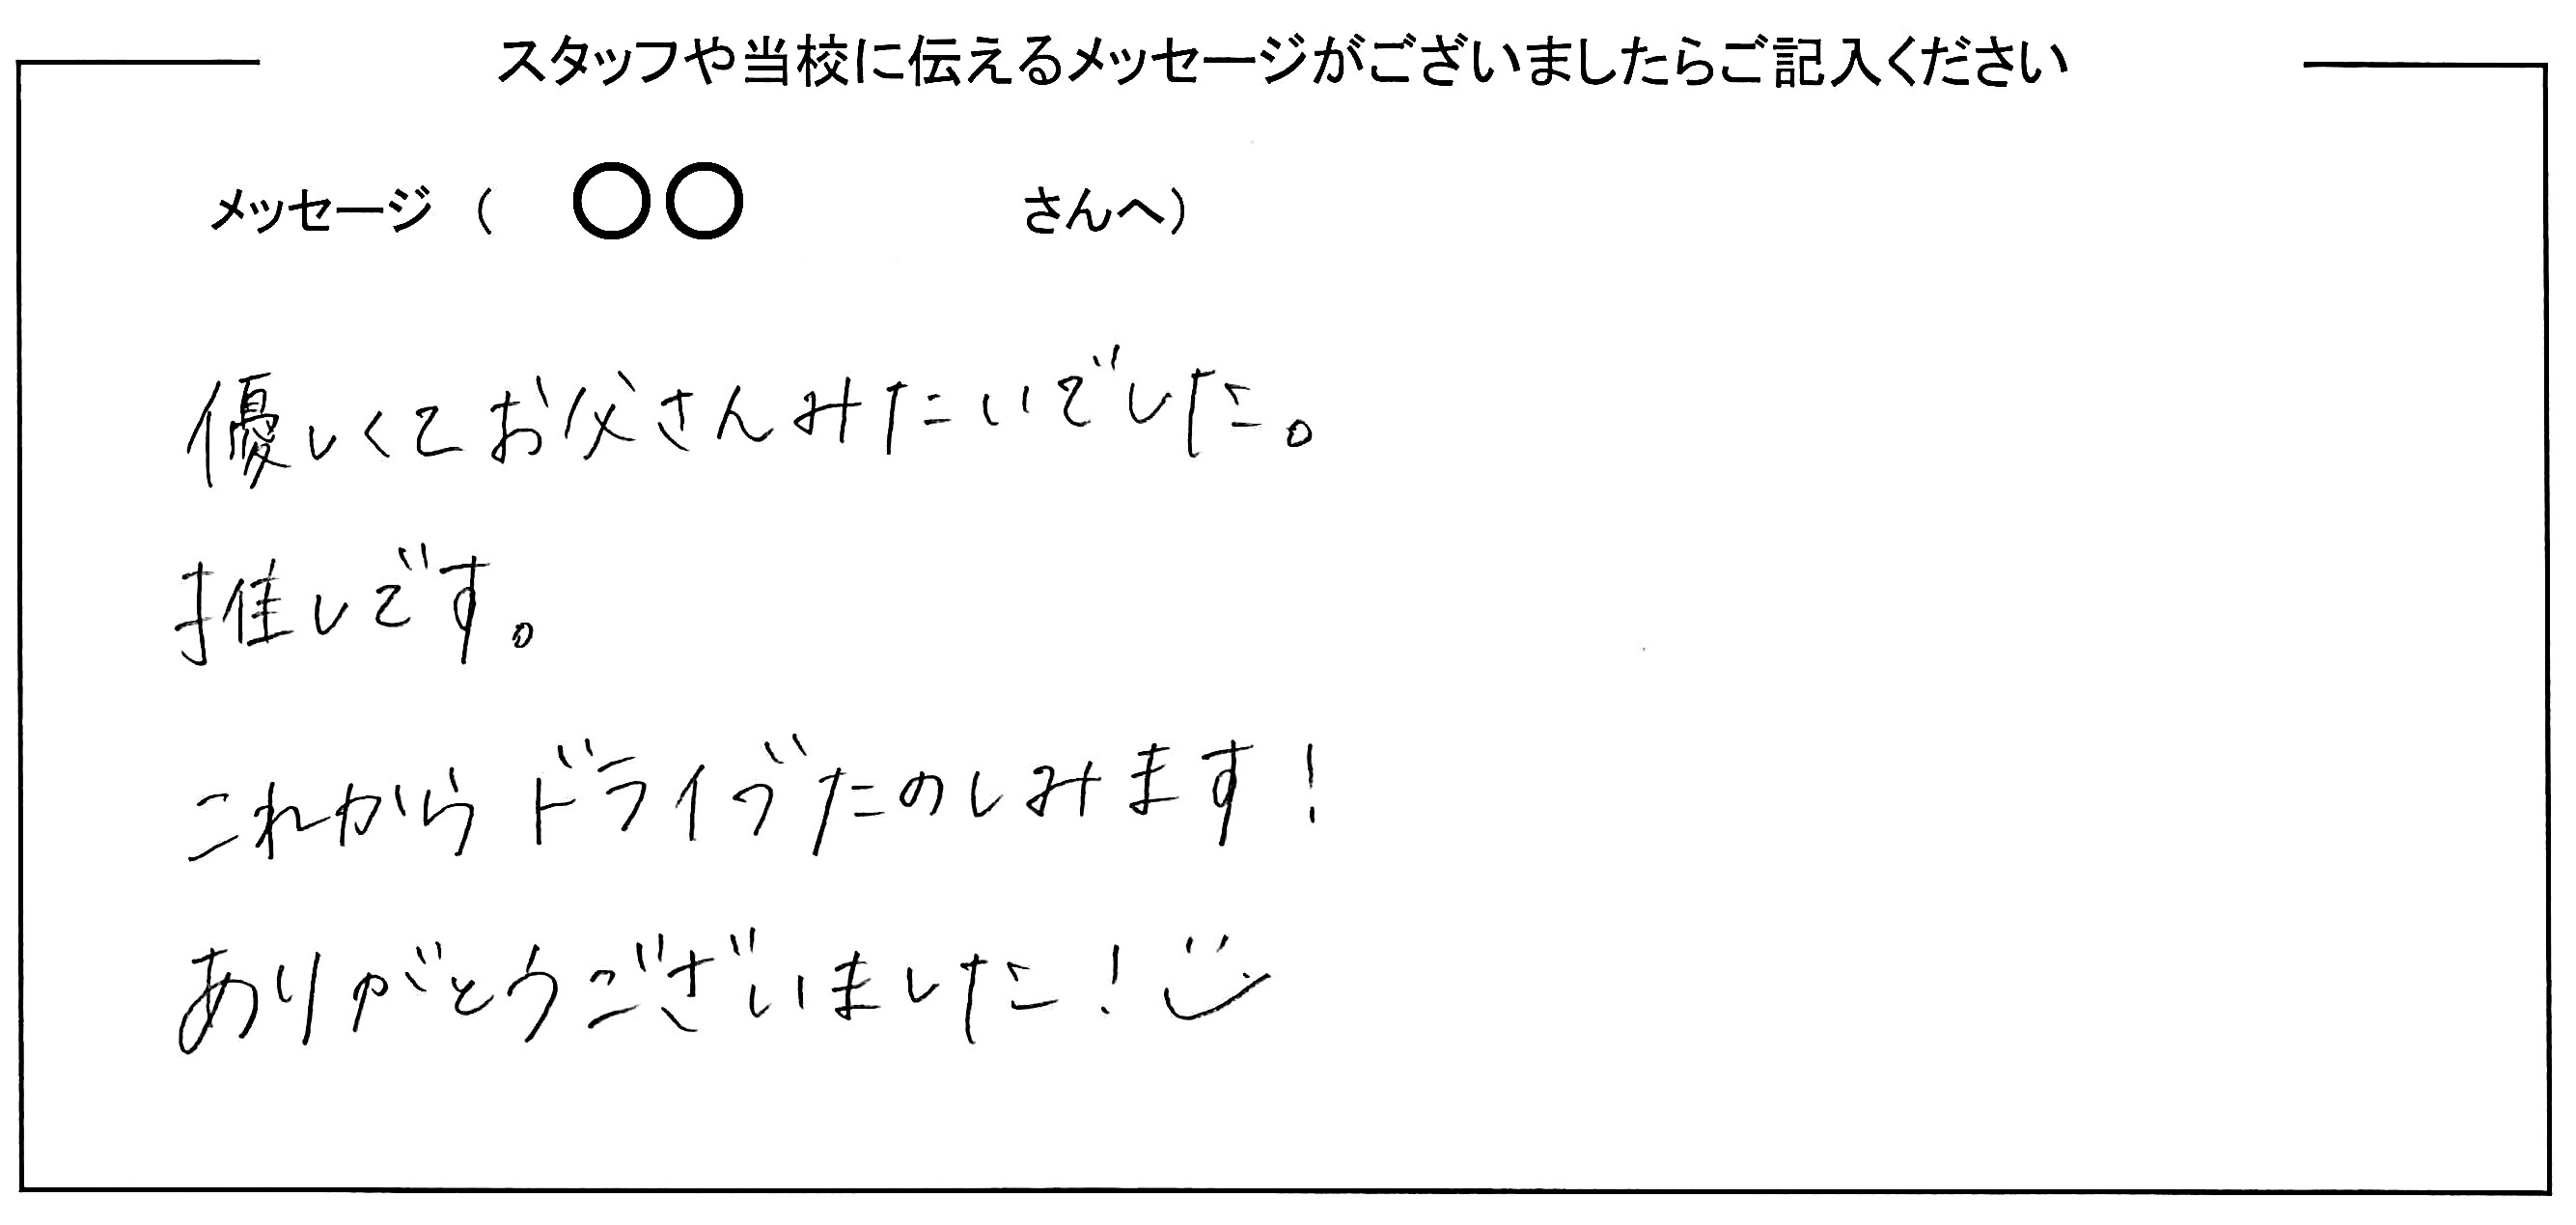 スタッフや当校に伝えるメッセージがございましたらご記入ください
メッセージ（ ○○ さんへ）
優しくてお父さんみたいでした。
推しです。
これからドライブたのしみます！
ありがとうございました！